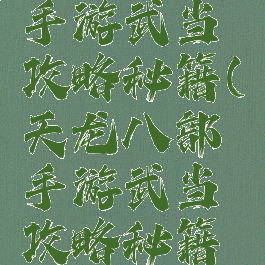 手游武当
攻略秘籍(
天龙八部
手游武当
攻略秘籍